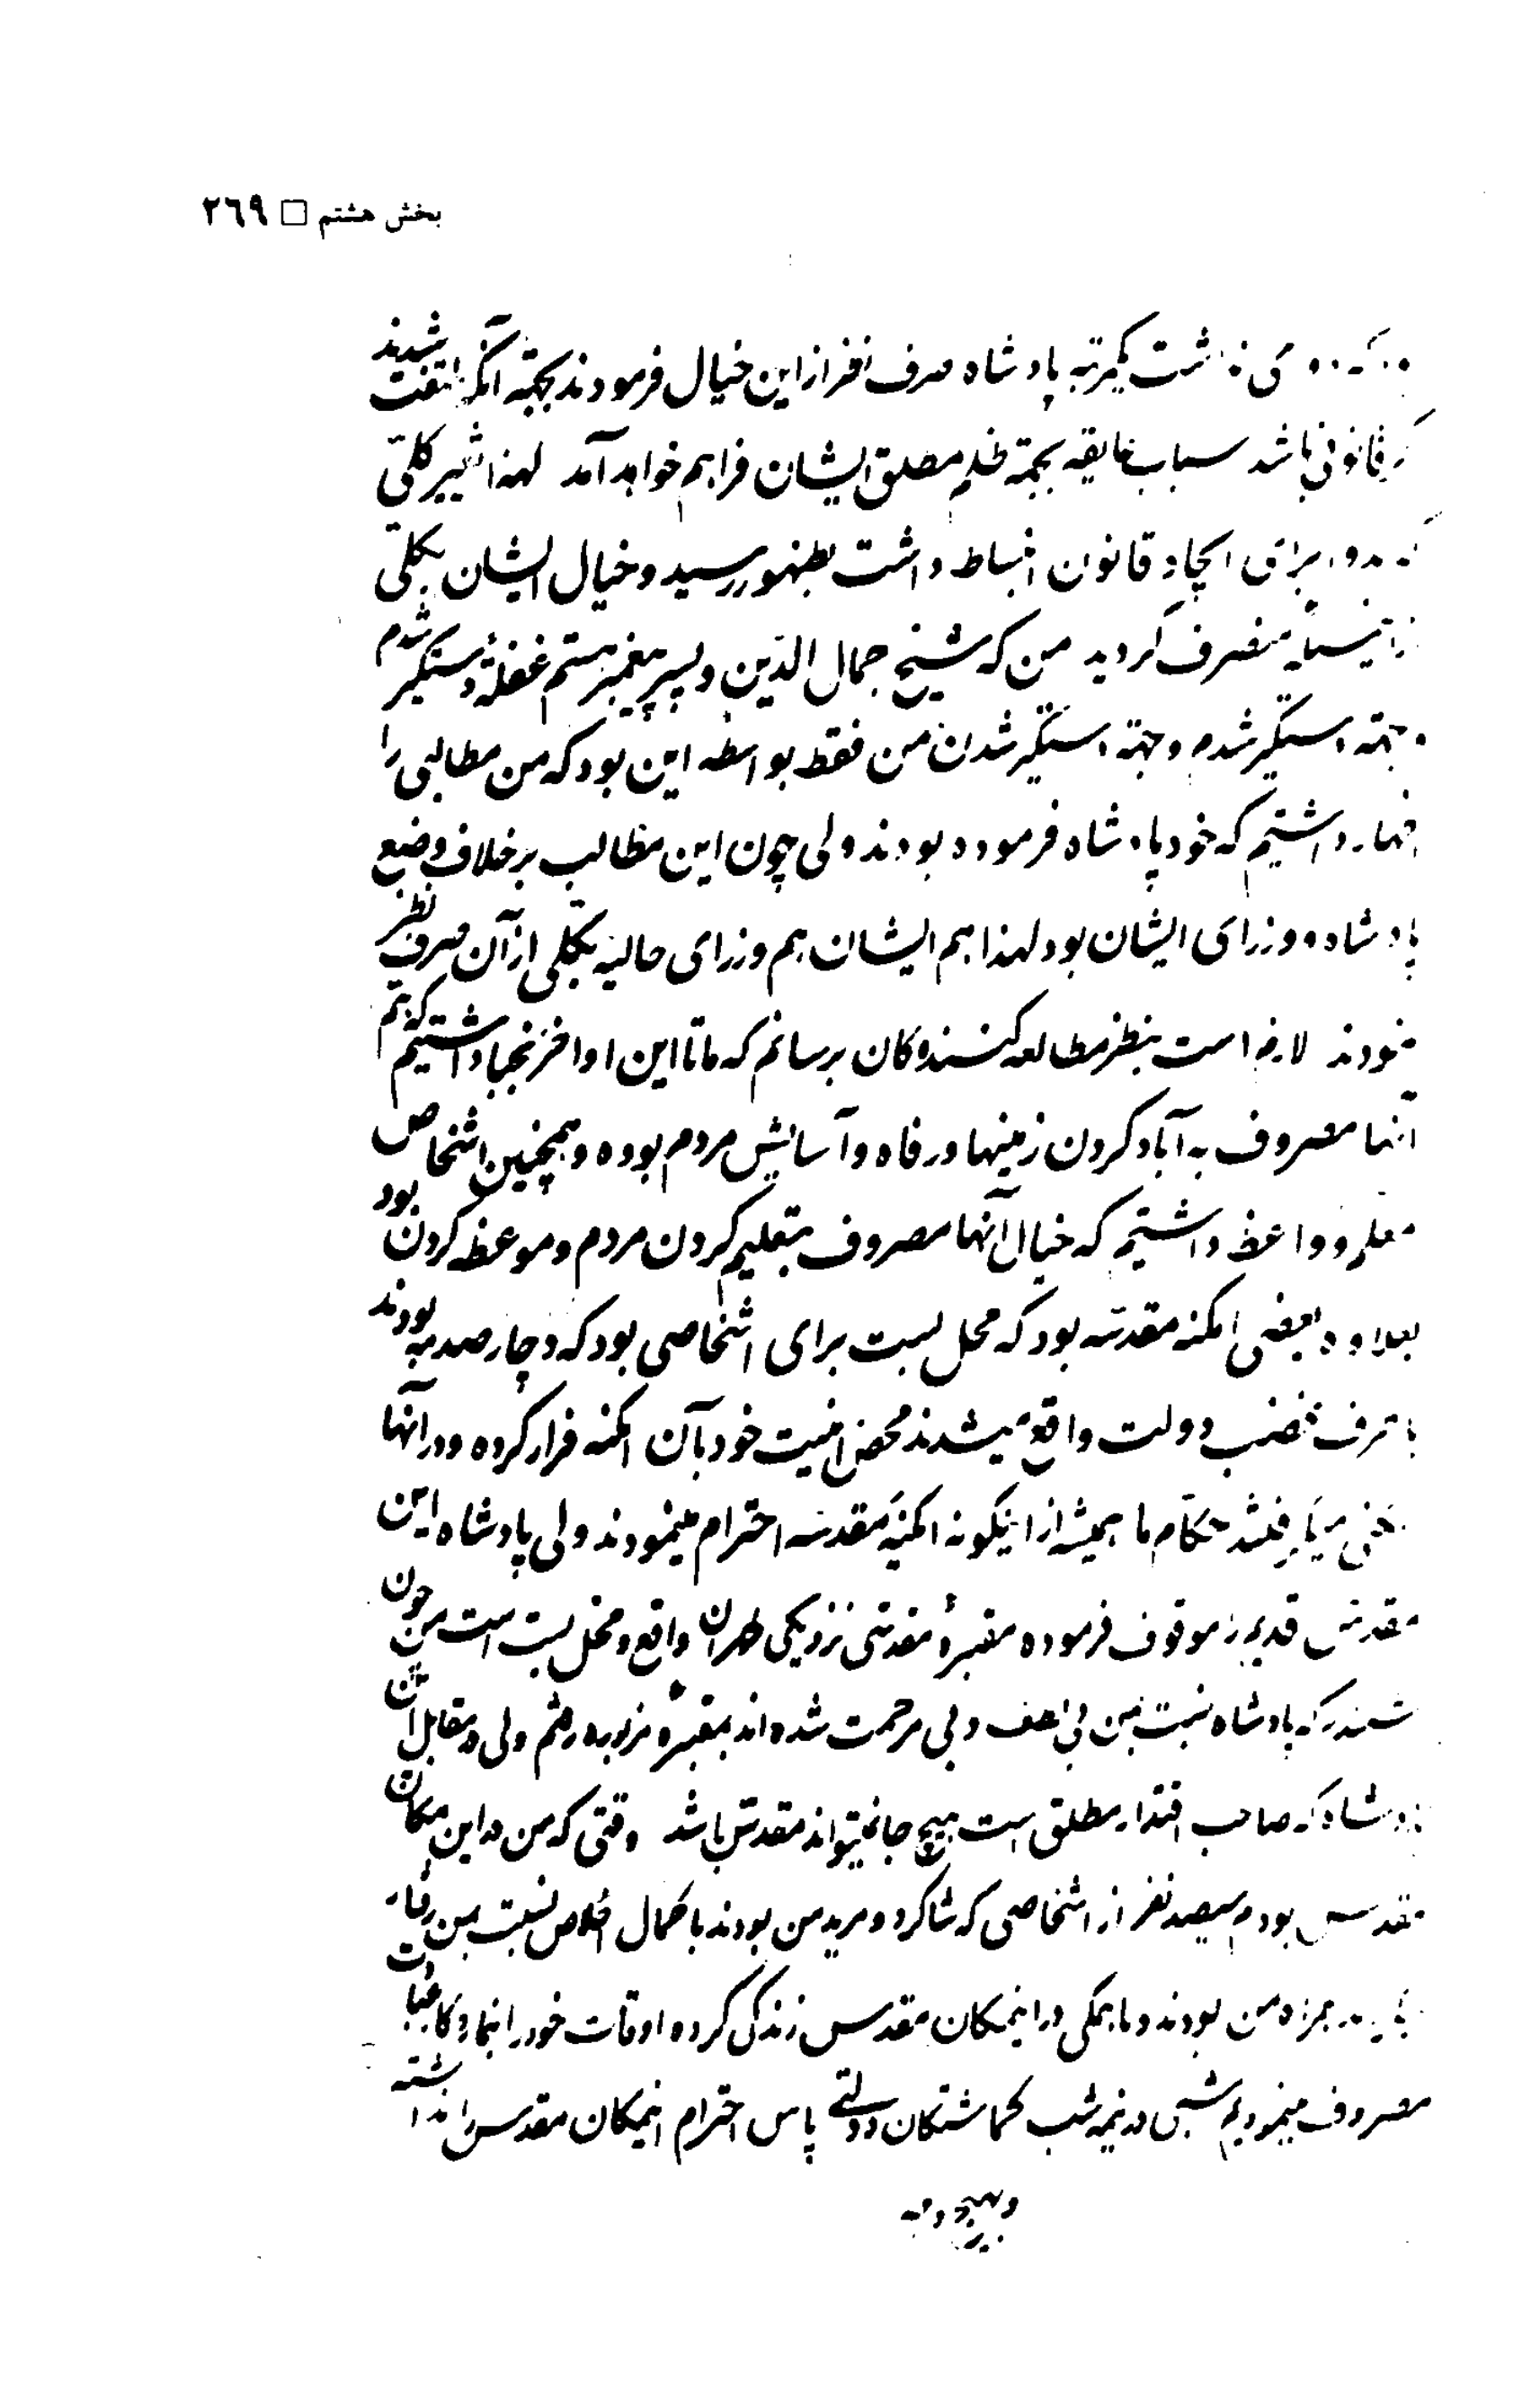 بخش هشتم □ ٢٦٩
یکمرتبه پادشاه صرف نظر از این خیال فرمودند بجهة آنکه ملتفت شدند
قانونی باشد اسباب عایقه بجهة ظلم مطلق ایشان فراهم خواهد آمد لهذا تغییر کلی
برای ایجاد قانون انبساط داشت بظهور رسید و خیال ایشان بکلی
منصرف گردید من که شیخ جمال الدین و پسر پیغمبر هستم غفلةً دستگیر شدم
دستگیر شدم و جهة دستگیر شدن من فقط بواسطه این بود که من مطالبی را
اظهار داشتیم که خود پادشاه فرموده بودند ولی چون این مطالب برخلاف وضع
پادشاه و وزرای ایشان بود لهذا هم ایشان هم وزرای حالیه بکلی از آن صرف نظر
نمودند لازم است بنظر مطالعه کنندگان برسانم که ما تا این اواخر نجبا داشتیم که هم
آنها مصروف به آباد کردن زمینها و رفاه و آسایش مردم بوده و همچنین اشخاص
معلم و واعظ داشتیم که خیال آنها مصروف بتعلیم کردن مردم و موعظه کردن بود
بعلاوه بعضی امکنه مقدسه بود که محل بست برای اشخاصی بود که دچار صدمه بودند
یا طرف غضب دولت واقع میشدند محض امنیت خود بآن امکنه فرار کرده و در آنها
حکام ما همیشه از اینگونه امکنهٔ مقدسه احترام مینمودند ولی پادشاه این
مقدس قدیم را موقوف فرموده مقبرهٔ مقدسی نزدیکی طهران واقع و محل بست است من چون
شنیدم که پادشاه نسبت بمن بی لطف و بی مرحمت شده اند بمقبرهٔ مزبوره رفتم ولی در مقابل آن
پادشاه که صاحب اقتدار مطلق است هیچ جا نمیتواند مقدس باشد وقتی که من در این مکان
مقدس بودم سیصد نفر از اشخاصی که شاگرد و مرید من بودند با کمال اخلاص نسبت بمن رفتار
همراه من بودند و ما همگی در اینمکان مقدس زندگی کرده اوقات خود را بنماز و عبادت
مصروف مینمودیم شبی در نیمه شب گماشتگان دولتی پاس احترام اینمکان مقدس را نداشته